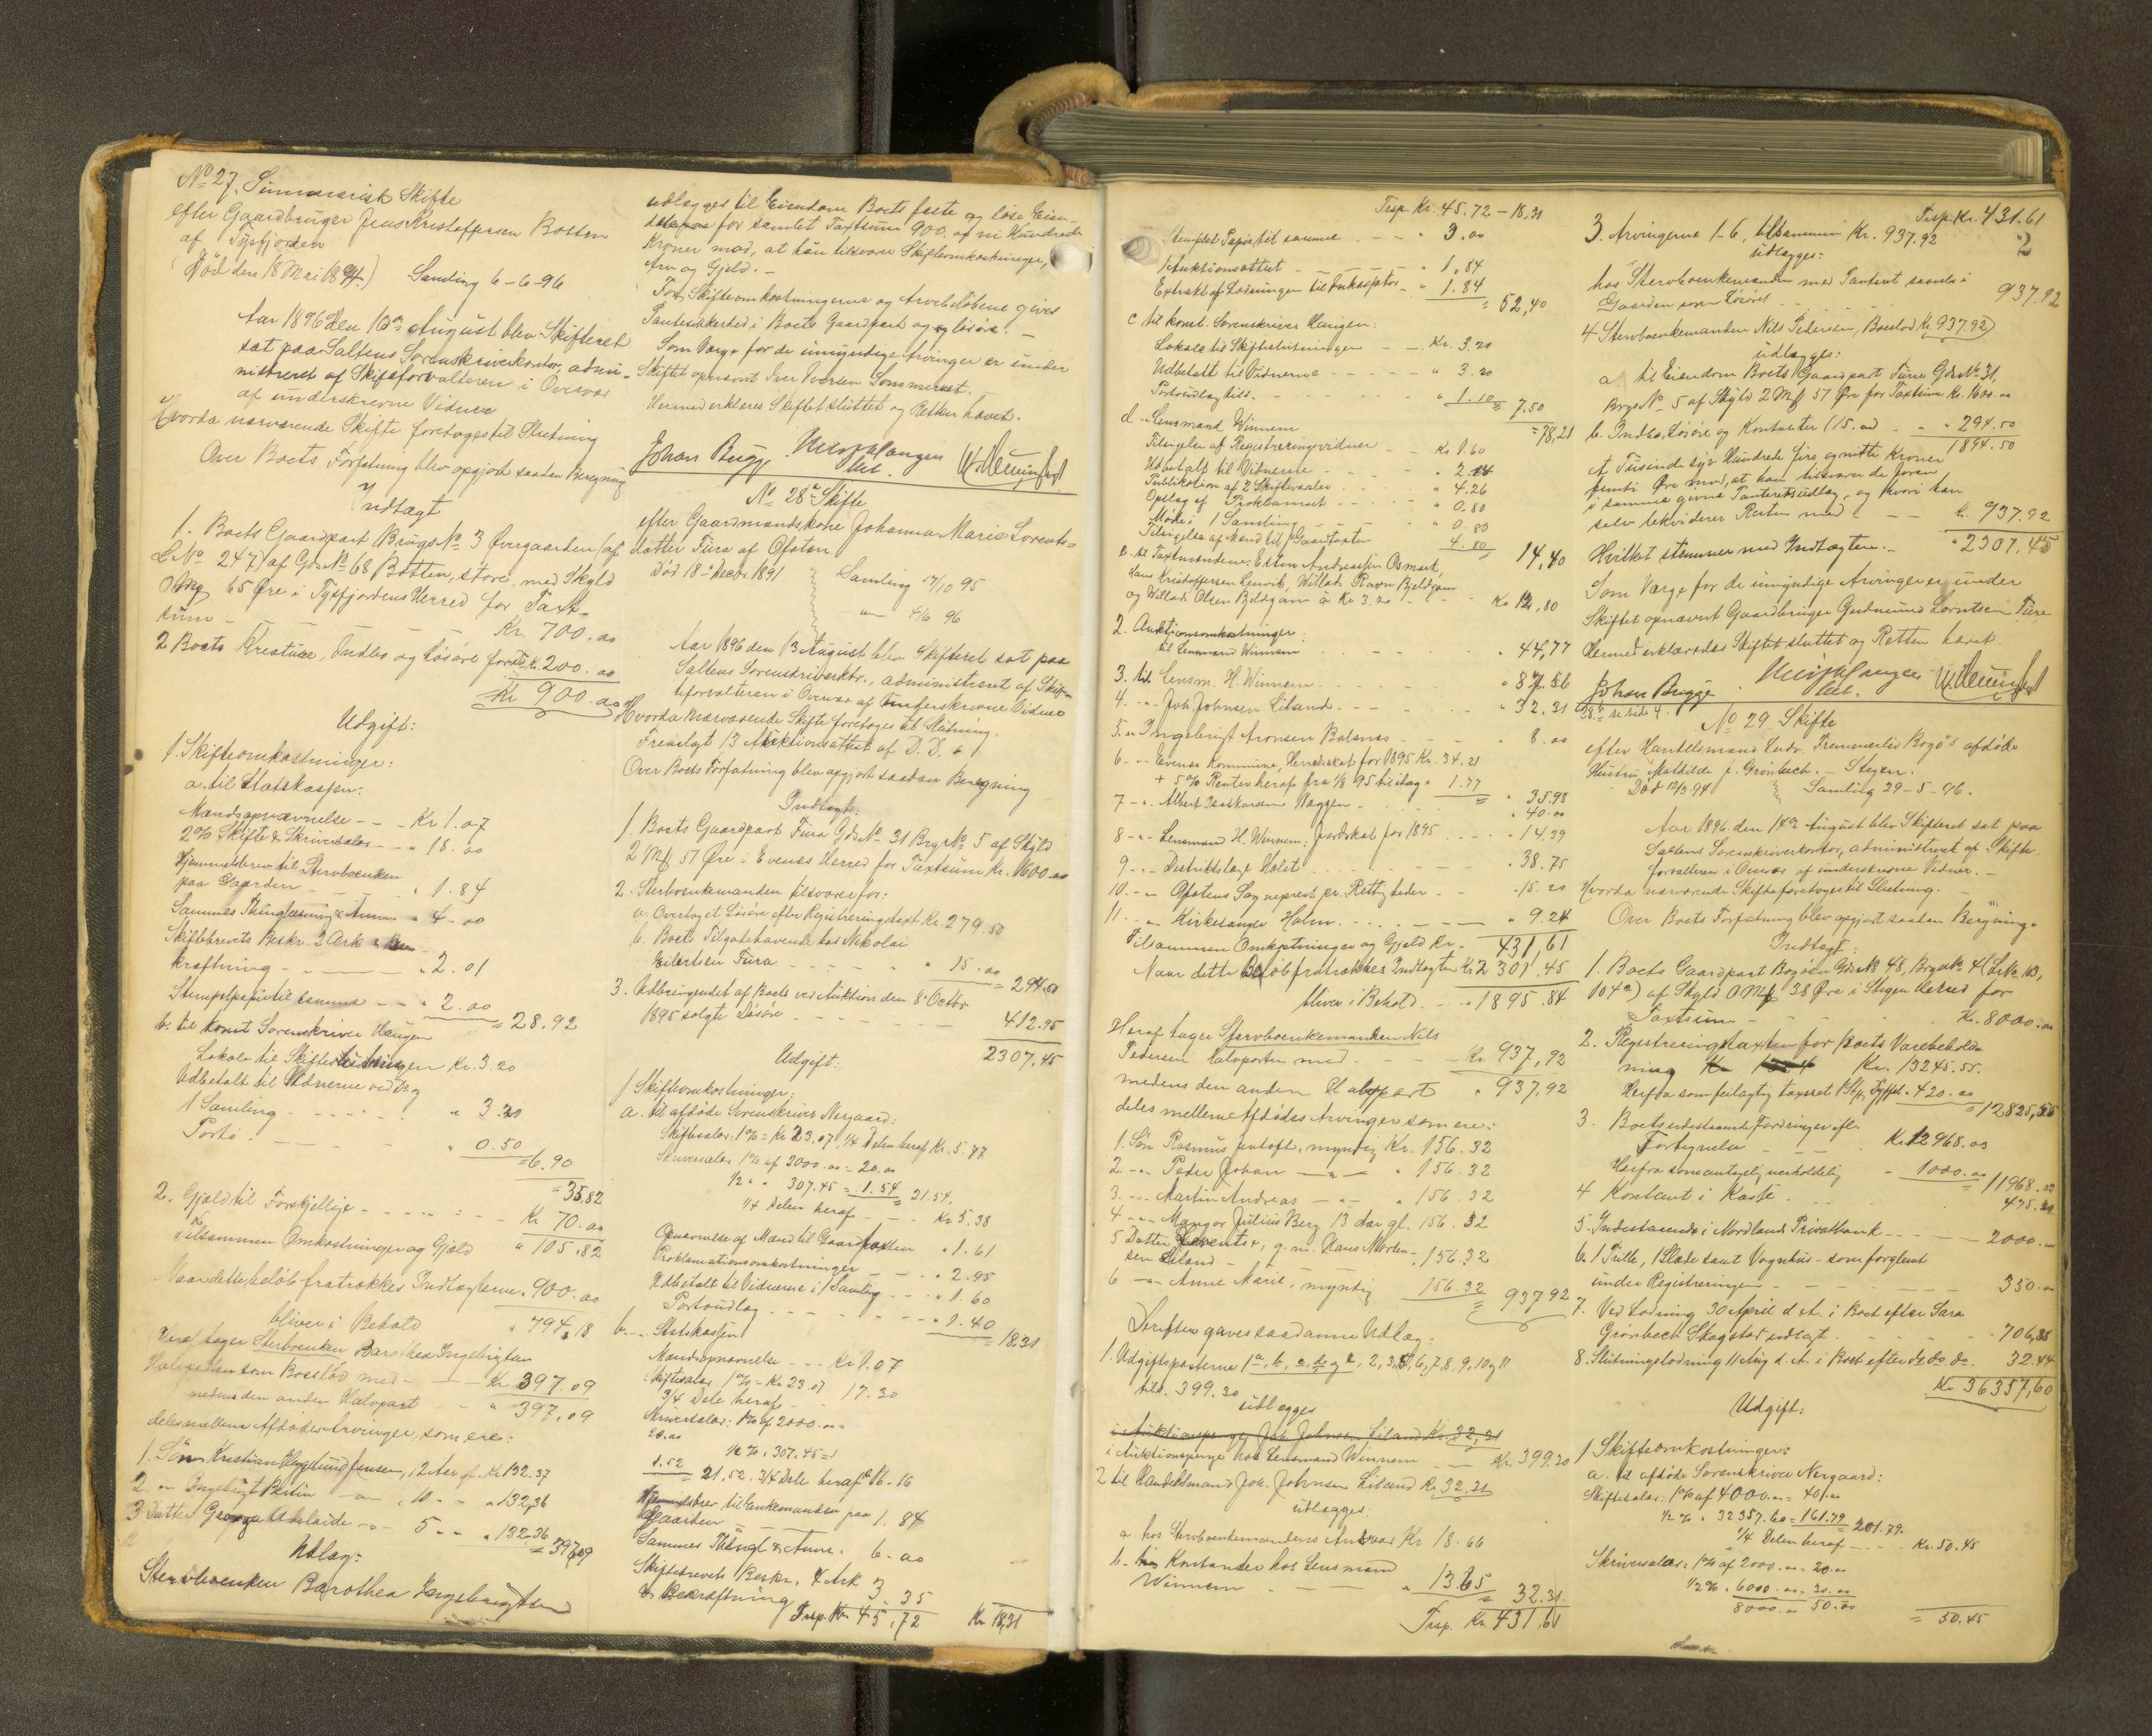 No 27. Summarisk Skifte
efter Gaardbruger Jens Kristoffersen Botten
af Tysfjorden
(Død den 18 Mai 1894.) Samling 6-6-96
Aar 1896 den 10de August blev Skifteret
sat paa Saltens Sorenskriverkontor, admi-
nistreret af Skifteforvalteren i Overvær
af underskrevne Vidner
Hvorda nærværende Skifte foretoges til Slutning
Over Boets Forfatning blev opgjort saadan Beregning
Indtægt
1. Boets Gaardpart Brugs No 3 Øvergaarden (af
L No 247) af Gds No 68 Botten, store, med Skyld
0 Mk 65 Øre i Tysfjordens Herred for Taxt-
sum - Kr. 700.00
2 Boets Kreature, Indbo og Løsøre for Kr. 200.00
Kr 900.00
Udgift:
1. Skifteomkostninger:
a. til Statskassen:
Mandsopnævnelse - - Kr 1.07
2% Skifte & Skriversalær - - " 18.00
Hjemmelsbrev til Stervboenken
paa Gaarden - " 1.84
Sammes Thinglæsning & Annm " 4.00
Skiftebrevets Beskr. 2 Ark &
kræftning - " 2.01
Stempelpapir til samme - " 2.00
= 28.92
b. til konst Sorenskriver Haugen
Lokale til Skifteslutningen Kr. 3.20
Udbetalt til Vidnerne ved Do og
1 Samling - " 3.20
Porto - " 0.50
= 6.90
= 35.82
2. Gjæld til Forskjellige - Kr 70.00
Tilsammen Omkostninger og Gjæld " 105.82
Naar dette beløb fratrækkes Indtægterne " 900.00
bliver i Behold " 794.18
Heraf tager Stervboenken Barothea Ingebrigtsen
Halvparten som Boeslod med - Kr 397.09
medens den anden Halvpart " 397.09
deles mellem Afdødes Arvinger, som ere:
1. Søn Kristian Hegelund Jensen, 12 Aar gl. Kr 132.37
2 " Ingebrigt Martin " 10 " " 132,36
3 Datter Georga Adelaide " 5 " " 132.36 = 397,09
Udlæg:
Stervboenken Barothea Ingebrigtsen
udlægges til Eiendom Boets faste og løse Eien-
dele for samlet Taxtsum 900.00 ni Hundrede
Kroner mod, at hun tilsvarer Skifteomkostninger,
Arv og Gjæld. -
For Skifteomkostningerne og Arvebeløbene gives
Pantesikkerhed i Boets Gaardpart og løsøre. -
Som Værge for de umyndige Arvinger er under
Skiftet opnævnt Iver Iversen Sommerset.
Hermed erklæres Skiftet sluttet og Retten hævet.
Johan Brügge
No 28 Skifte
efter Gaardmandskone Johanna Marie Lorents-
datter Fura af Ofoten
Død 18de Decbr. 1891
Samling 17/10 95
" 4/6 96
Aar 1896 den 13 August blev Skifteret sat paa
Saltens Sorenskriverktr., administreret af Skif-
teforvalteren i Overvær af Underskrevne Vidner
Hvorda nærværende Skifte foretoges til Slutning.
Fremlagt 13 Auktionsattest af D. D. &
Over Boets Forfatning blev opgjort saadan Beregning
Indtægt:
1. Boets Gaardpart Fura Gds No 31 Brgs No 5 af Skyld
2 Mk 57 Øre i Evenes Herred for Taxtsum Kr. 1600.00
2. Sterboenkemanden tilsvarer for:
a. Overtaget Løsøre efter Registreringstaxt Kr. 279.50
b. Boets Tilgodehavende hos Nikolai
Eilertsen Fura - " 15.00
= 294.50
3. Udbringendet af Boets ved Auktion den 8de Octbr
1895 solgte Løsøre - 412.95
2307.45
Udgift:
1 Skifteomkostninger:
a. til afdøde Sorenskriver Nergaard:
Skiftesalær: 1% = Kr 23.07, 1/4 Delen heraf Kr. 5.77
Skriversalær 1% af 2000.00 = 20.00
1/2 " " 307.45 = 1.54 = 21.54.
1/4 Delen heraf - Kr 5.38
Opnævnelse af Mænd til Gaardtaxten " 1.61
Proklamationsomkostninger " 2.95
Udbetalt til Vidnerne i 1 Samling " 1.60
Portoudlæg " 1.40
= 18.31
b. " Statskassen
Mandsopnævnelse - Kr 1.07
Skiftesalær 1% = Kr 23.07
3/4 Dele heraf 17.30
Skriversalær: 1% af 2000.00 =
20.00
1/2 % " 307.45 =
1.52 = 21.52. 3/4 Dele heraf 16-16
Hjemmelsbrev til Enkemanden paa
Gaarden - 1.84
Sammes Thingl & Annm. 6.00
Skiftebrevets Beskr. 4 Ark
& Bekræftning 3.35
Trsp. Kr. 45,72 Kr. 18,31
Trsp. Kr. 45.72 - 18,31
Stemplet Papir til samme - " 3.00
1 Auktionsattest - " 1.84
Extrakt af Lodningen til Inkassator - " 1.84
= 52,40
c til konst. Sorenskriver Haugen:
Lokale til Skifteslutningen - Kr. 3.20
Udbetalt til Vidnerne - " 3.20
Portoudlæg tils. - " 1.10 = 7.50
= 78,21
d " Lensmand Winnem
Tilsigelse af Registreringsvidner - Kr 1.60
Udbetalt til Vidnerne - " 2.14
Publikation af 2 Skiftesamler - " 4.26
Opslag af Proklamaet - " 0.80
Møde i 1 Samling - " 0.80
Tilsigelse af Mænd til Gaardtaxten 4.80
14,40
e. til Taxtmændene: Esten Andreassen Osmark,
Hans Kristoffersen Lenvik, Willads Ravn Bjeldgam
og Willads Olsen Bjeldgam à Kr 3.20 - Kr 12,80
2. Auktionsomkostninger:
til Lensmand Winnem - " 44,77
3. til Lensm. H. Winnem - " 87.56
4. " Joh. Johnsen Liland - " 32.31
5. " Ingebrigt Aronsen Balsnes - " 8.00
6 - " Evenes Kommune, Herredskat for 1895 Kr. 34.21
+ 5% Renter heraf fra 1/8 95 til idag " 1.77
= " 35.98
7 - " Albert Isaksen - " 40.00
8 - " Lensmand H. Winnem: Jordskat for 1895 - " 14.39
9 - " Distriktslæge Holst - " 38.75
10. - " Ofotens Sogneprest, pr. Rettigheder - " 15.20
11. - " Kirkesanger Holm - " 9.24
Tilsammen Omkostninger og Gjæld Kr. 431,61
Naar dette Beløb fratrækkes Indtægten Kr 2307.45
bliver i Behold - 1895.84
Heraf tager Stervboenkemanden Nils
Pedersen Halvparten med - Kr 937,92
medens den anden Halvpart " 937,92
deles mellem Afdødes Arvinger som ere:
1. Søn Rasmus Jentoft, myndig Kr. 156.32
2 - " Peder Johan - " - " 156.32
3. - " Martin Andreas - " - " 156.32
4 - " Mangor Julius Berg 13 Aar gl. 156.32
5 Datter Lorentse, g.m. Hans Morten-
sen Liland - " 156.32
6 - " Anne Marie, myndig 156.32 = 937.92
Derefter gaves saadanne Udlæg:
1. Udgiftsposterne 1 a, b, c, d og e, 2, 3, 5, 6, 7, 8, 9, 10 og 11
tils. 399.30
udlægges
i Auktionspenge Joh. Johnsen Liland Kr. 32,31
i Auktionspenge hos Lensmand Winnem - Kr. 399.30
2 til Handelsmand Joh. Johnsen Liland Kr 32.31
udlægges:
a hos Stervboenkemandens Ansvar Kr 18.66
b. i Kontanter hos Lensmand
Winnem - " 13.65 = 32.31.
Trsp. Kr 431,61
Trsp. Kr. 431.61
2
3. Arvingerne 1-6, tilsammen Kr. 937.92
udlægges:
hos Stervboenkemanden med Panteret saavel i
Gaarden som Løsøret - 937.92
4 Stervboenkemanden Nils Pedersen, Boeslod Kr. 937.92)
udlægges:
a. til Eiendom Boets Gaardpart Fure Gds No 31,
Brgs No 5 af Skyld 2 Mk 57 Øre for Taxtsum Kr. 1600.00
b. Indbo, Løsøre og Kontanter (15.00) - " 294.50
1894.50
Et Tusinde otte Hundrede fire og nitti Kroner
femti Øre mod, at han tilsvarer de foran
i samme givne Panteretsudlæg, og hvori han
selv likviderer Resten med - k. 937.92
Hvilket stemmer med Indtægten. - " 2307.45
Som Værge for de umyndige Arvinger er under
Skiftet opnævnt Gaardbruger Gudmund Lorntsen Fure
Hermed erklæredes Skiftet sluttet og Retten hævet
Johan Brügge
28 se side 4.
No 29 Skifte
efter Handelsmand Bogøs afdøde
Hustru Mathilde f. Grønbech. - Stegen.
Død 12/3 94 Samling 29-5-96.
Aar 1896 den 14de August blev Skifteret sat paa
Saltens Sorenskriverkontor, administreret af Skifte-
forvalteren i Overvær af underskrevne Vidner. -
Hvorda nærværende Skifte foretoges til Slutning. -
Over Boets Forfatning blev opgjort saadan Beregning.
Indtægt:
1. Boets Gaardpart Bogøen Gds No 48, Brgs No 4 (L No 10,
104a) af Skyld 0 Mk 38 Øre i Stegen Herred for
Taxtsum - Kr. 8000.00
2. Registreringstaxten for Boets Varebehold-
ning Kr. 13245.55.
Herfra som feilagtig taxeret 420.00
= 12825,55
3. Boets udestaaende Fordringer efter
Fortegnelse - Kr. 12968.00
Herfra som antagelig uerholdelig " 1000.00 = 11968.00
4 Kontant i Kasse -
5. Indestaaende i Nordlands Privatbank - 2000.00
6. 1 Trille, 1 Slæde samt Vognhus - som forglemt
under Registreringen - 350.00
7. Ved Lodning 30 April d. A. i Boet efter Sara
Grønbech Skagstad udlagt - 706,36
8. Slutningslodning 11 Aug d. A. i Boet efter do do do. 32.44
Kr 36357,60
Udgift:
1 Skifteomkostninger:
a. til afdøde Sorenskriver Nergaard:
Skiftesalær: 1% af 4000.00 = 40.00
1/2 % " 32357.60 = 161.79 = 201.79.
1/4 Delen heraf - Kr. 50.45
Skriversalær: 1% af 2000.00 = 20.00
1/2 % " 6000.00 = 30.00
8000.00 50.00
= 50.45